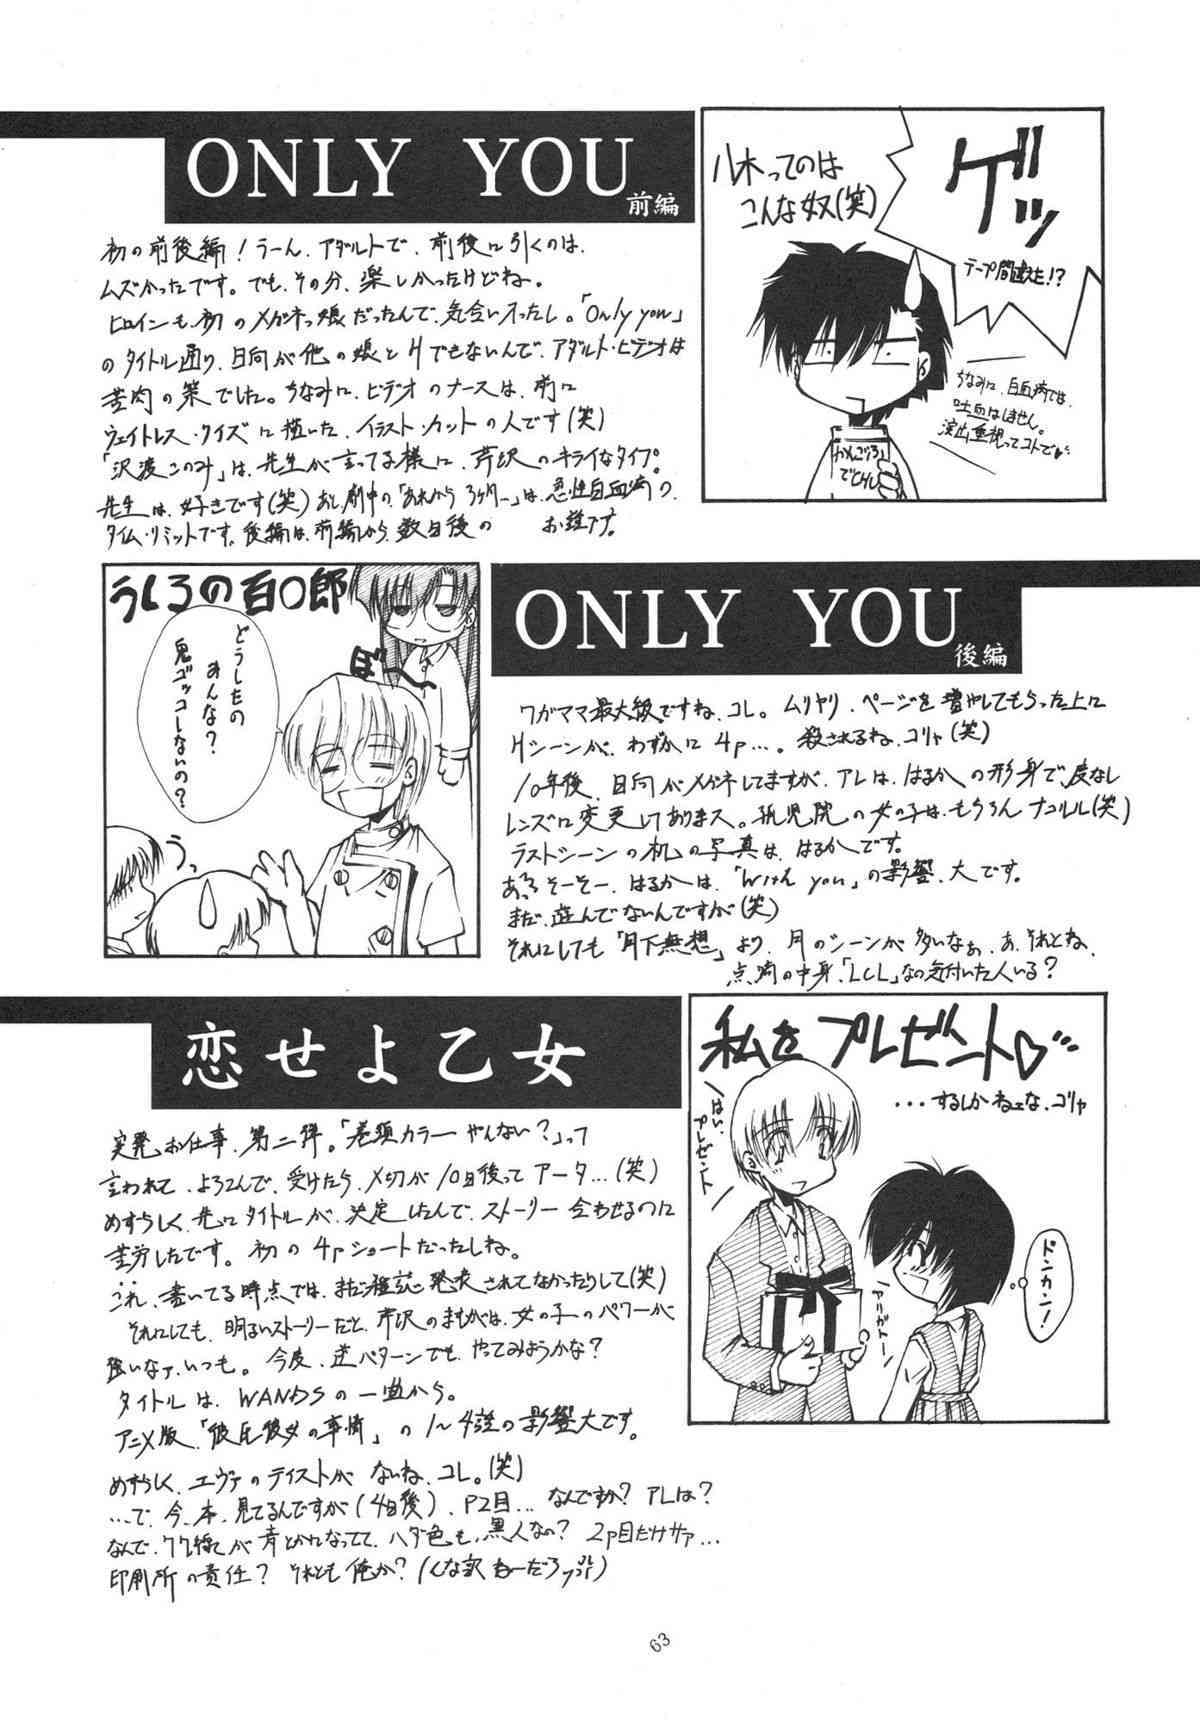 ONLY YOU
前編
初の前後編！うーん、アダルトで、前後に引くのは、
ムズかったです。でも、その分、楽しかったけどね。
ヒロインも、初のメガネっ娘だったんで、気合い入ったし。「Only you」
のタイトル通り、日向が他の娘とHできないんで、アダルト・ビデオは
苦肉の策でした。ちなみに、ビデオのナースは、前に
ウェイトレス・クイズに描いた、イラスト・カットの人です(笑)
「沢渡このみ」は、先生が言ってる様に、芹沢のキライなタイプ。
先生は、好きです(笑)あと、劇中の「あれから3ヶ月…」は、急性白血病の、
タイム・リミットです。後編は、前編から、数日後の お話です。
八木ってのは
こんな奴(笑)
ゲッ
テープ間違えた!?
ちなみに、白血病では、
吐血はしません。
演出重視ってコトで♥
かんごふ
でCHU
うしろの百〇郎
どうしたの
みんな？
鬼ゴッコしないの？
ぼ〜
うっ
ONLY YOU
後編
ワガママ最大級ですね、コレ。ムリヤリ、ページを増やしてもらった上に
Hシーンが、わずかに4p…。殺されるね、コリャ(笑)
10年後、日向がメガネしてますが、アレは、はるかの形身で、度なし
レンズに変更してありまス。孤児院の女の子は、もちろんナコルル(笑)
ラストシーンの机の写真は、はるかです。
あっ、そーそー、はるかは、「With you」の影響、大です。
まだ、遊んでないんですが(笑)
それにしても「月下無想」より、月のシーンが多いなぁ、あ、それとね、
点滴の中身、「LCL」なの気付いた人いる？
恋せよ乙女
突発お仕事、第二弾。「巻頭カラーやんない？」って
言われて、よろこんで、受けたら、〆切が10日後ってアータ…(笑)
めずらしく、先にタイトルが、決定したんで、ストーリー合わせるのに
苦労したです。初の4pショートだったしね。
これ、書いてる時点では、まだ雑誌発表されてなかったりして(笑)
それにしても、明るいストーリーだと、芹沢のまんがは、女の子のパワーが
強いなァ、いつも。今度、逆パターンでも、やってみようかな？
タイトルは、WANDSの一曲から。
アニメ版、「彼氏彼女の事情」の1〜4話の影響大です。
めずらしく、エヴァのテイストがないね、コレ。(笑)
…で、今、本、見てるんですが(4日後)、P2目…なんですか？アレは？
なんで、ワク線が青とかれなってて、ハダ色も、黒人なの？2p目だけサァ…
印刷所の責任？それとも俺か？(んな訳ねーだろ
私をプレゼント♡…
…するしかねェな、コリャ
はい、
プレゼント
アリガトー
ドンカン！
63